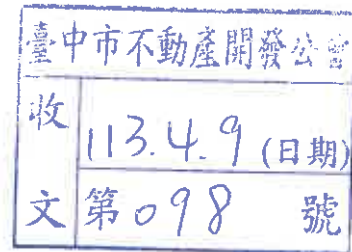 臺中市不動產開發公會
收文
113.4.9 (日期)
第098 號